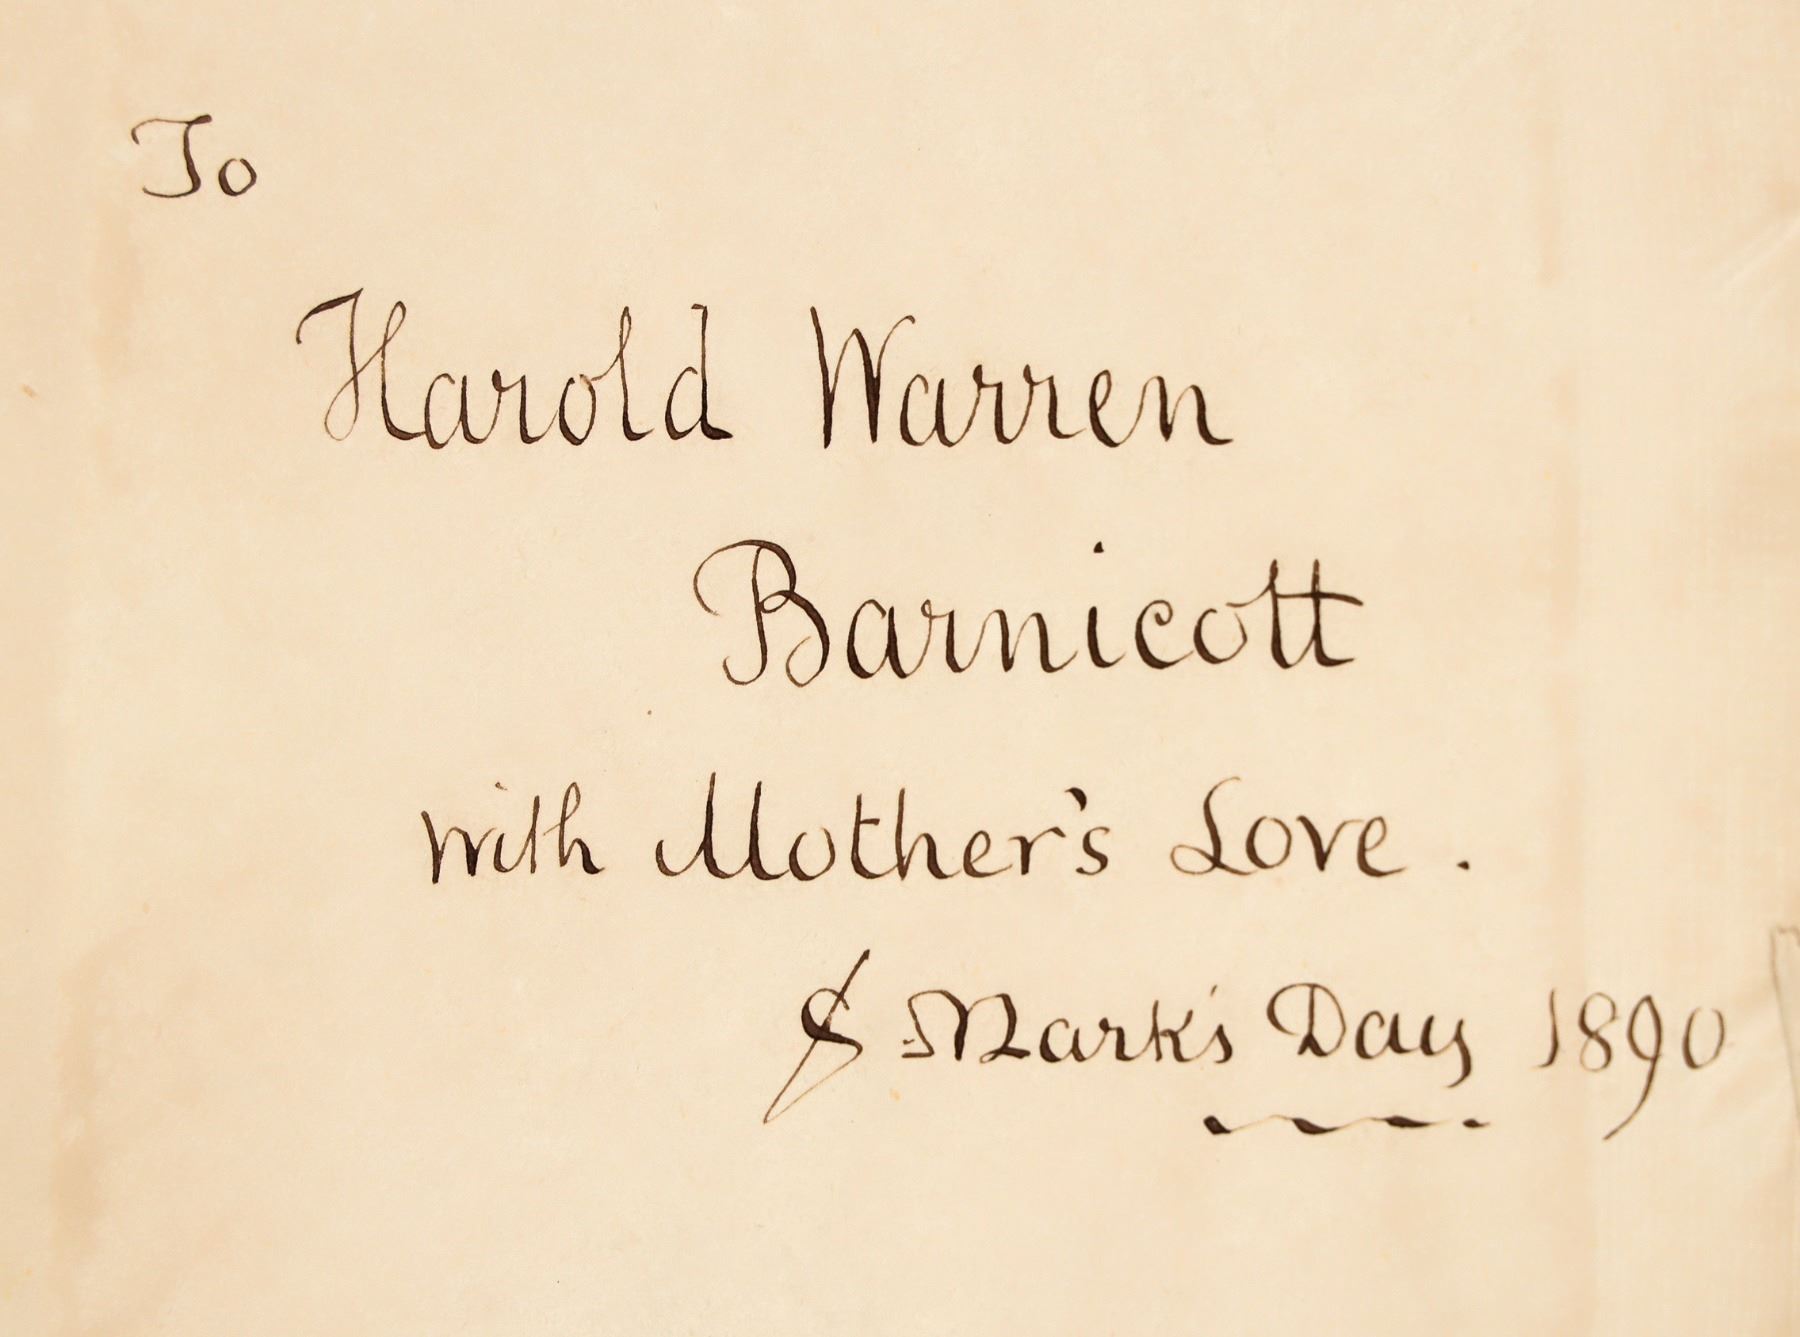 To
Harold Warren
Barnicott
with Mother's Love.
St Mark's Day 1890